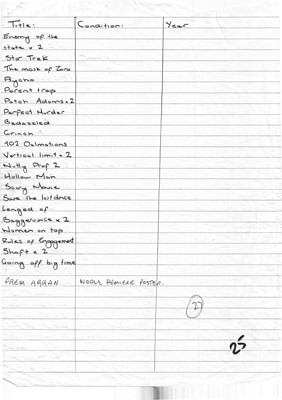 Title: Condition: Year
Enemy of the
state x 2
Star Trek
The mask of Zoro
Psycho
Parent trap
Patch Adams x 2
Perfect Murder
Bedazzeled
Grinch
102 Dalmations
Vertical limit x 2
Nutty Prof 2
Hollow Man
Scary Movie
Save the last dnce
Lenged of
Baggervance x 2
Women on top
Rules of Engagement
Shaft x 2
Going off big time
PREM AGGAN WORLD PREMIERE POSTER.
27
25